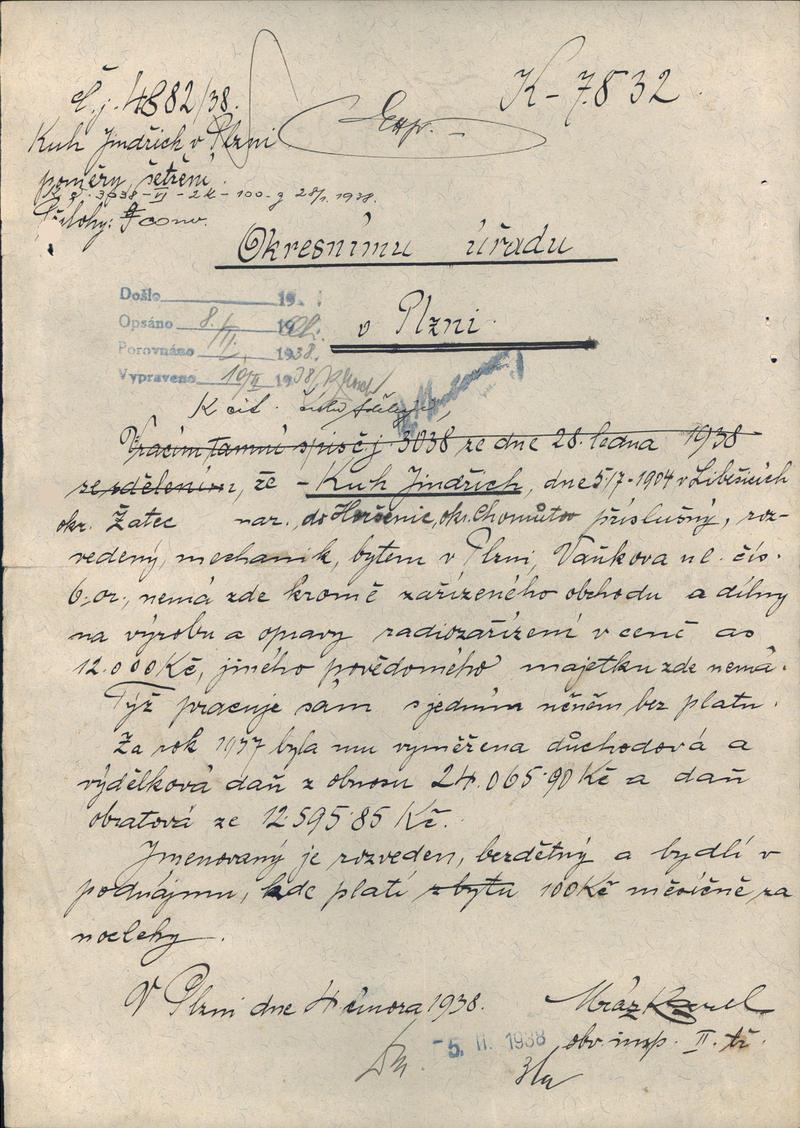 Č.j. 4882/38.
K-7832
Exp.
Kuh Jindřich v Plzni
poměry šetření.
3038-VI-2k-100-g 28/1. 1938.
Přílohy:
Okresnímu úřadu
v Plzni.
Došlo 19
Opsáno 8./II. 19
Porovnáno 1938.
Vypraveno 10/II 1938
K čís.
Vracím tamní spis č.j. 3038 ze dne 28. ledna 1938
se sdělením, že - Kuh Jindřich, dne 5/7-1904 v Liběšicích
okr. Žatec nar., do okr. Chomutov příslušný, roz-
vedený, mechanik, bytem v Plzni, Vaňkova ul. čís.
6. or., nemá zde kromě zařízeného obchodu a dílny
na výrobu a opravy radiozařízení v ceně as
12.000 Kč, jiného povědomého majetku zde nemá.
Týž pracuje sám s jedním učněm bez platu.
Za rok 1937 byla mu vyměřena důchodová a
výdělková daň z obnosu 24.065·90 Kč a daň
obratová ze 12.595·85 Kč.
Jmenovaný je rozveden, bezdětný a bydlí v
podnájmu, kde platí z bytu 100 Kč měsíčně za
noclehy.
V Plzni dne 4 února 1938.
Mráz Karel
-5. II. 1938
obv. insp. II. tř.